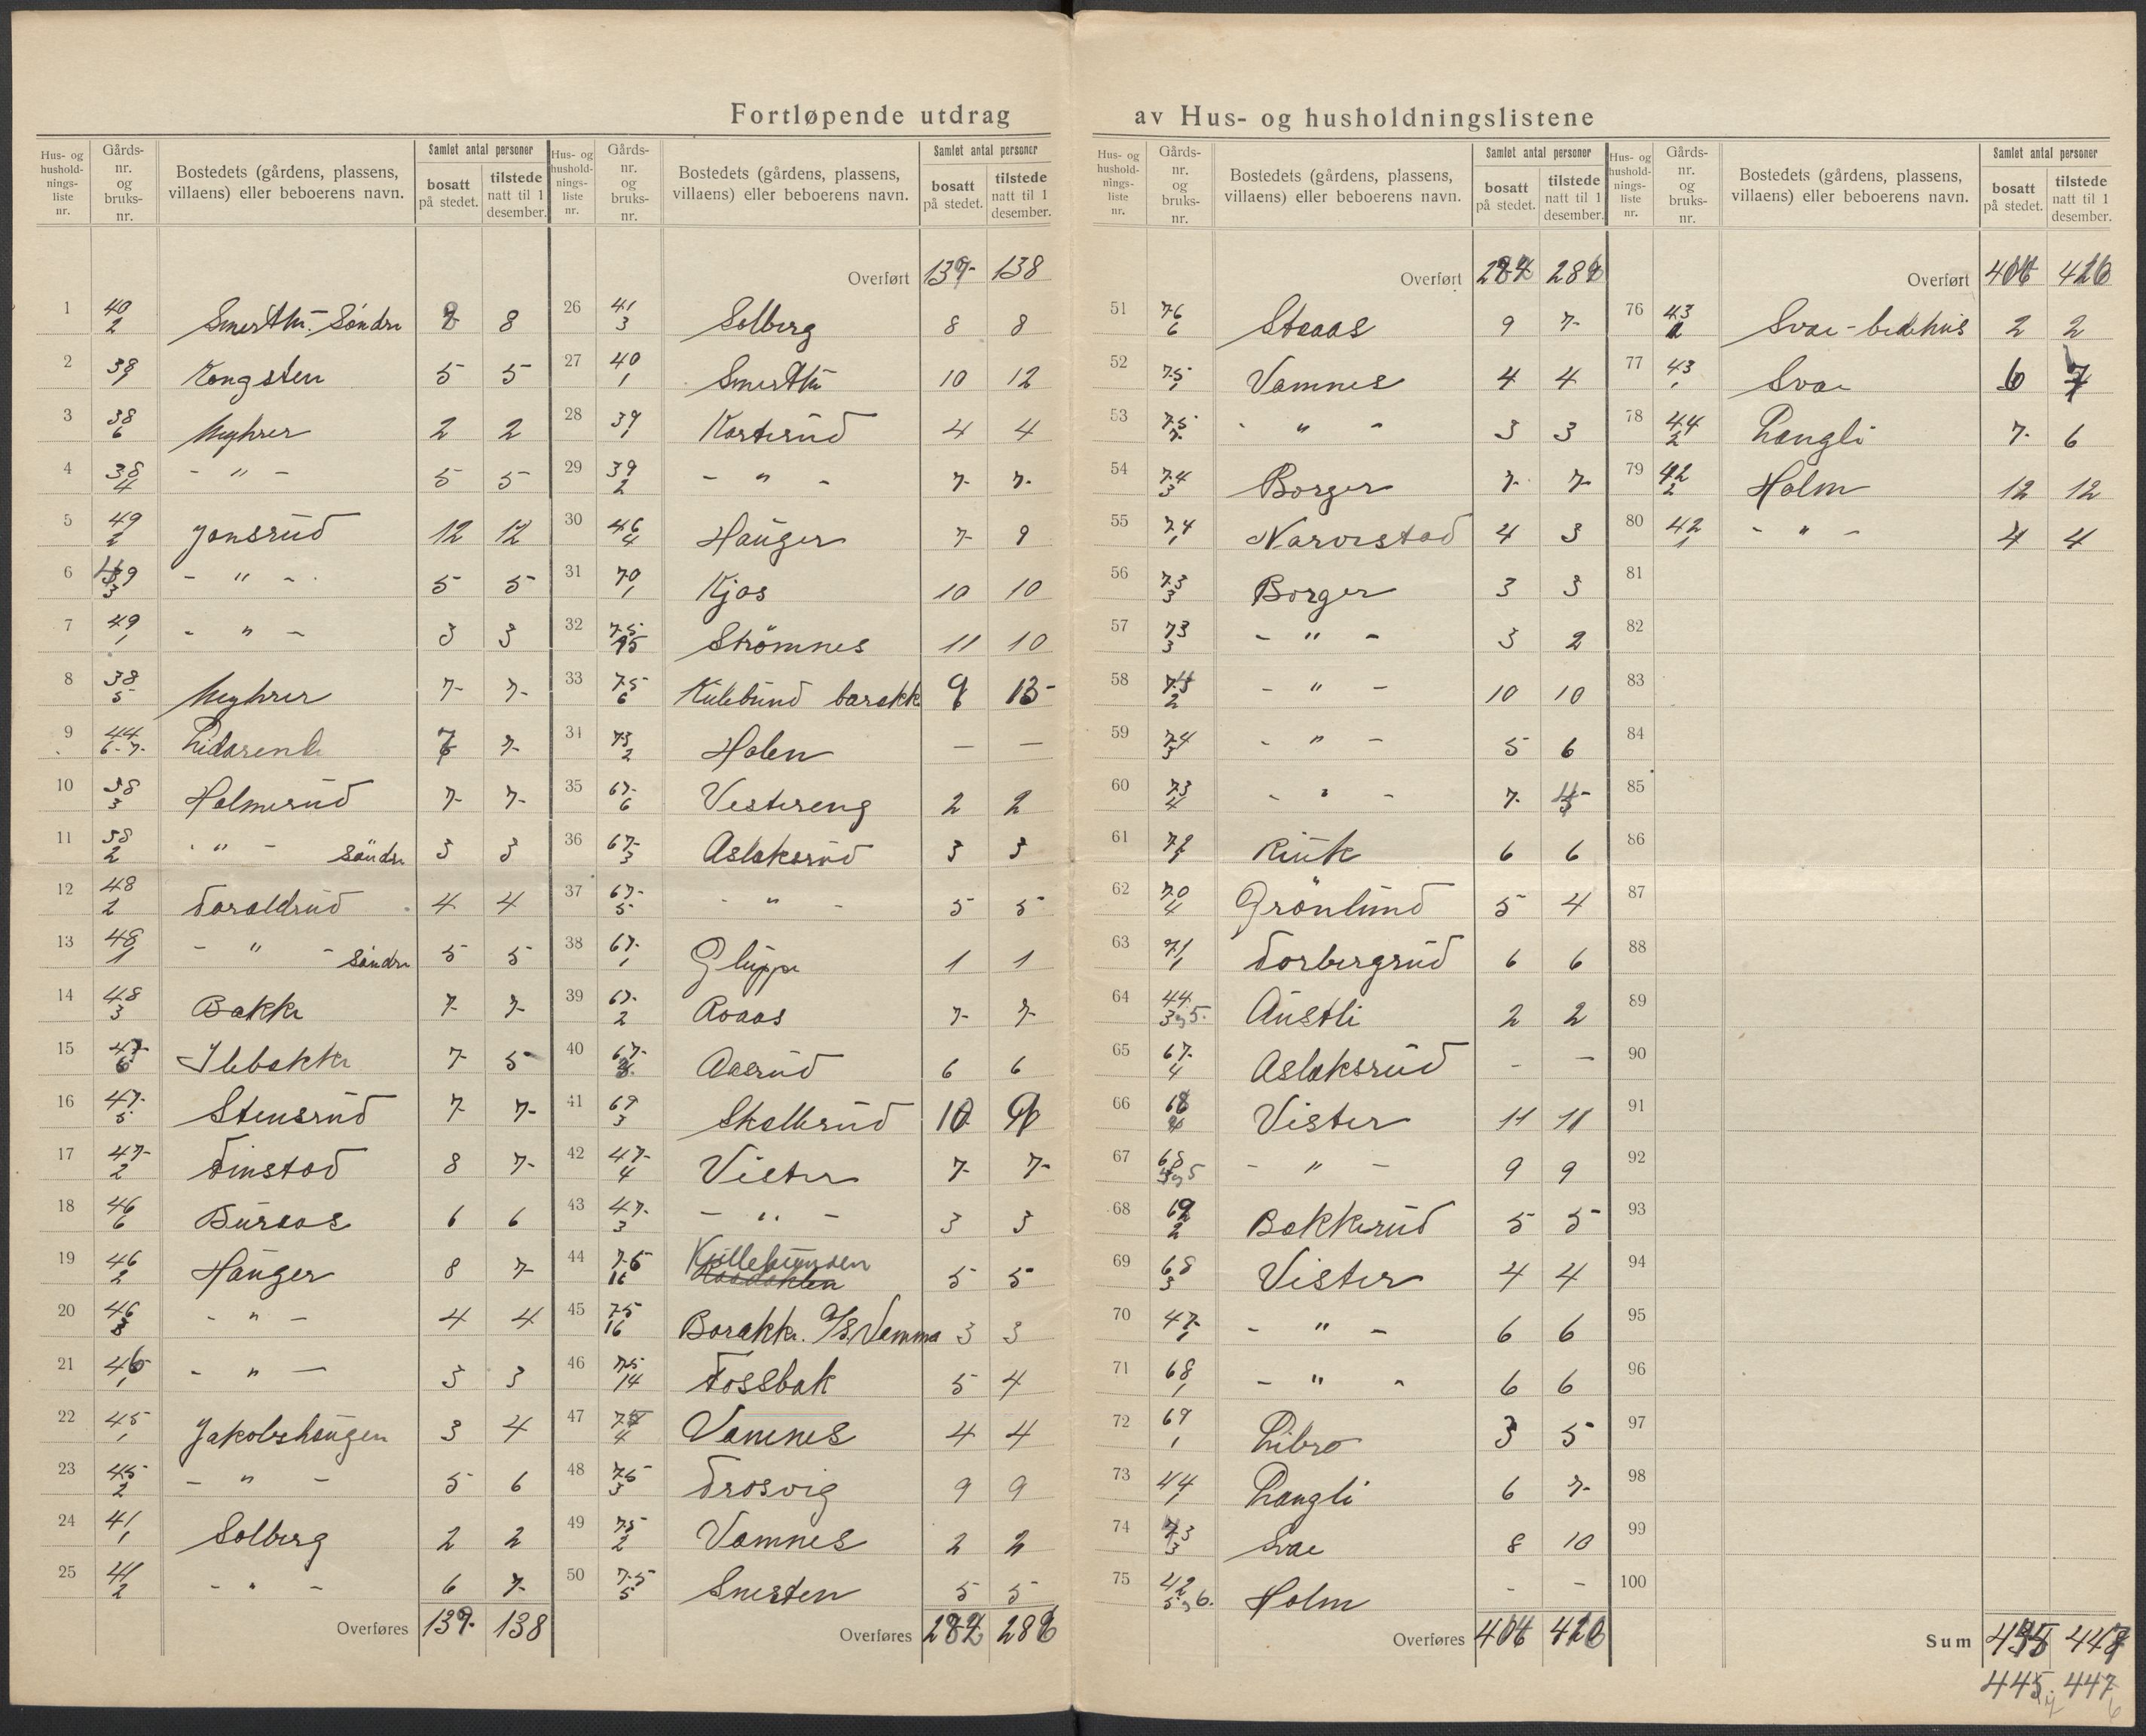 Fortløpende utdrag av Hus- og husholdningslistene
Hus- og husholdningsliste nr. | Gårdsnr. og bruksnr. | Bostedets (gårdens, plassens, villaens) eller beboerens navn. | Samlet antal personer bosatt på stedet. | tilstede natt til 1 desember.
1 40/2 Smerthu Søndre 8 8
2 38/7 Kongsten 5 5
3 38/6 Meyhrer 2 2
4 38/4 - " - 5 5
5 49/2 Jonsrud 12 12
6 49/3 - " - 5 5
7 49/1 - " - 3 3
8 38/5 Meyhrer 7 7
9 44/6-7 Lidarende 7 7
10 38/3 Holmerud 7 7
11 38/2 - " - Søndre 3 3
12 48/2 Toraldrud 4 4
13 48/1 - " - Søndre 5 5
14 48/3 Bakke 7 7
15 47/6 Ilebakke 7 5
16 47/5 Stensrud 7 7
17 47/2 Finstad 8 7
18 46/6 Buraas 6 6
19 46/2 Hauger 8 7
20 46/3 - " - 4 4
21 46/1 - " - 3 3
22 45/1 Jakobshaugen 3 4
23 45/2 - " - 5 6
24 41/1 Solberg 2 2
25 41/2 - " - 6 7
Overføres 139 138
Overført 139 138
26 41/3 Solberg 8 8
27 40/1 Smerthu 10 12
28 39/1 Karterud 4 4
29 39/2 - " - 7 7
30 46/4 Hauger 7 9
31 70/1 Kjos 10 10
32 75/15 Strømnes 11 10
33 75/6 Kulebund barakke 9 13
34 73/2 Holen - -
35 67/6 Vestereng 2 2
36 67/3 Aslaksrud 3 3
37 67/5 - " - 5 5
38 67/1 Gluppe 1 1
39 67/2 Roaas 7 7
40 67 Aasrud 6 6
41 69/3 Skallerud 10 9
42 47/4 Vister 7 7
43 47/3 - " - 3 3
44 75/16 Kullebunden 5 5
45 75/16 Barakke A/S. Vamma 3 3
46 75/14 Fossbak 5 4
47 75/4 Vamnes 4 4
48 75/3 Trosvig 9 9
49 75/2 Vamnes 2 2
50 75/5 Snesten 5 5
Overføres 282 288
Overført 282 288
51 76/6 Staaas 9 7
52 75/1 Vamnes 4 4
53 75/7 - " - 3 3
54 74/3 Borger 7 7
55 74/1 Narvestad 4 3
56 73/3 Borger 3 3
57 73/3 - " - 3 2
58 73/2 - " - 10 10
59 74/3 - " - 5 6
60 73/4 - " - 7 5
61 72/1 Ruik 6 6
62 70/4 Grønlund 5 4
63 71/1 Torbergrud 6 6
64 44/3 og 5. Austli 2 2
65 67/4 Aslaksrud - -
66 68 Vister 11 11
67 68/4 og 5 - " - 9 9
68 69/2 Bakkerud 5 5
69 68/3 Vister 4 4
70 47/1 - " - 6 6
71 68/1 - " - 6 6
72 69/1 Libro 3 5
73 44/1 Langli 6 7
74 43/3 Svae 8 10
75 42/5 og 6. Holm - -
Overføres 404 420
Overført 404 420
76 43/2 Svae-bedehus 2 2
77 43/1 Svae 6 7
78 44/2 Langli 7 6
79 42/2 Holm 12 12
80 42/1 - " - 4 4
81
82
83
84
85
86
87
88
89
90
91
92
93
94
95
96
97
98
99
100
Sum 435 447
445. 447